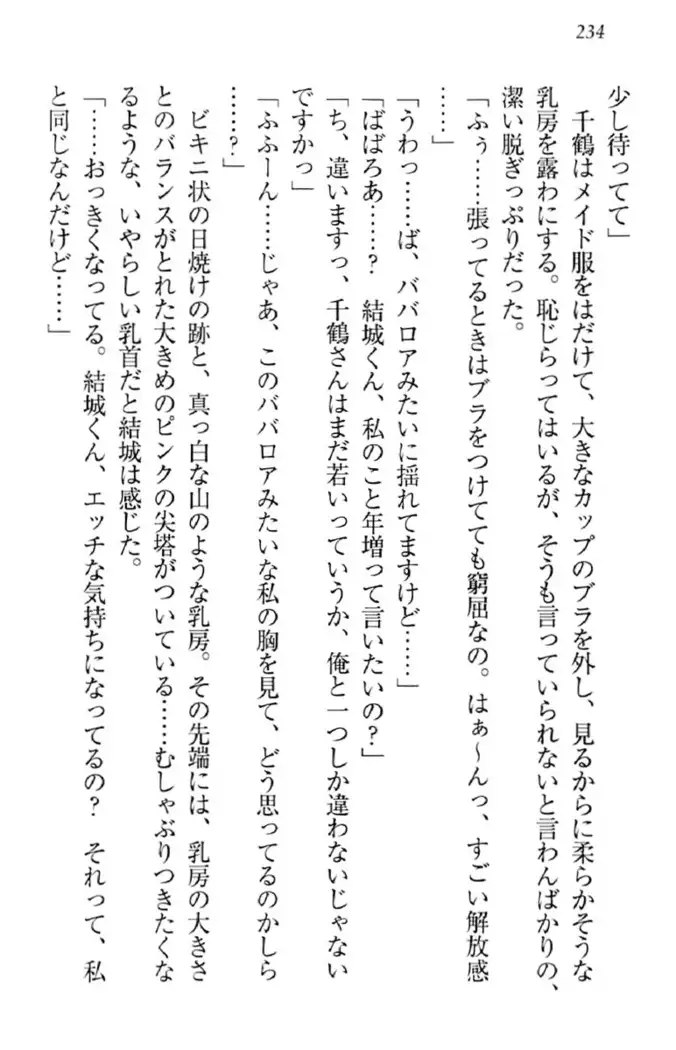 234
少し待ってて」
千鶴はメイド服をはだけて、大きなカップのブラを外し、見るからに柔らかそうな
乳房を露わにする。恥じらってはいるが、そうも言っていられないと言わんばかりの、
潔い脱ぎっぷりだった。
「ふぅ……張ってるときはブラをつけてても窮屈なの。はぁ～んっ、すごい解放感
……」
「うわっ……ば、ババロアみたいに揺れてますけど……」
「ばばろあ……？　結城くん、私のこと年増って言いたいの？」
「ち、違いますっ、千鶴さんはまだ若いっていうか、俺と一つしか違わないじゃない
ですかっ」
「ふふーん……じゃあ、このババロアみたいな私の胸を見て、どう思ってるのかしら
……？」
ビキニ状の日焼けの跡と、真っ白な山のような乳房。その先端には、乳房の大きさ
とのバランスがとれた大きめのピンクの尖塔がついている……むしゃぶりつきたくな
るような、いやらしい乳首だと結城は感じた。
「……おっきくなってる。結城くん、エッチな気持ちになってるの？　それって、私
と同じなんだけど……」